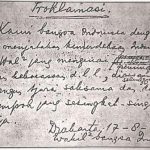 Proklamasi.
Kami bangsa Indonesia deng
menjatakan kemerdekaan Indon
Hal² jang mengenai
kekoeasaan d.l.l.,
tjara saksama dan
tempoh jang sesingkat-singk
Djakarta, 17-8-
Wakil² bangsa Ind